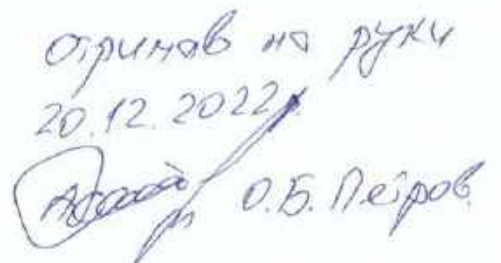 отримав на руки
20.12.2022р.
О.Б. Петров